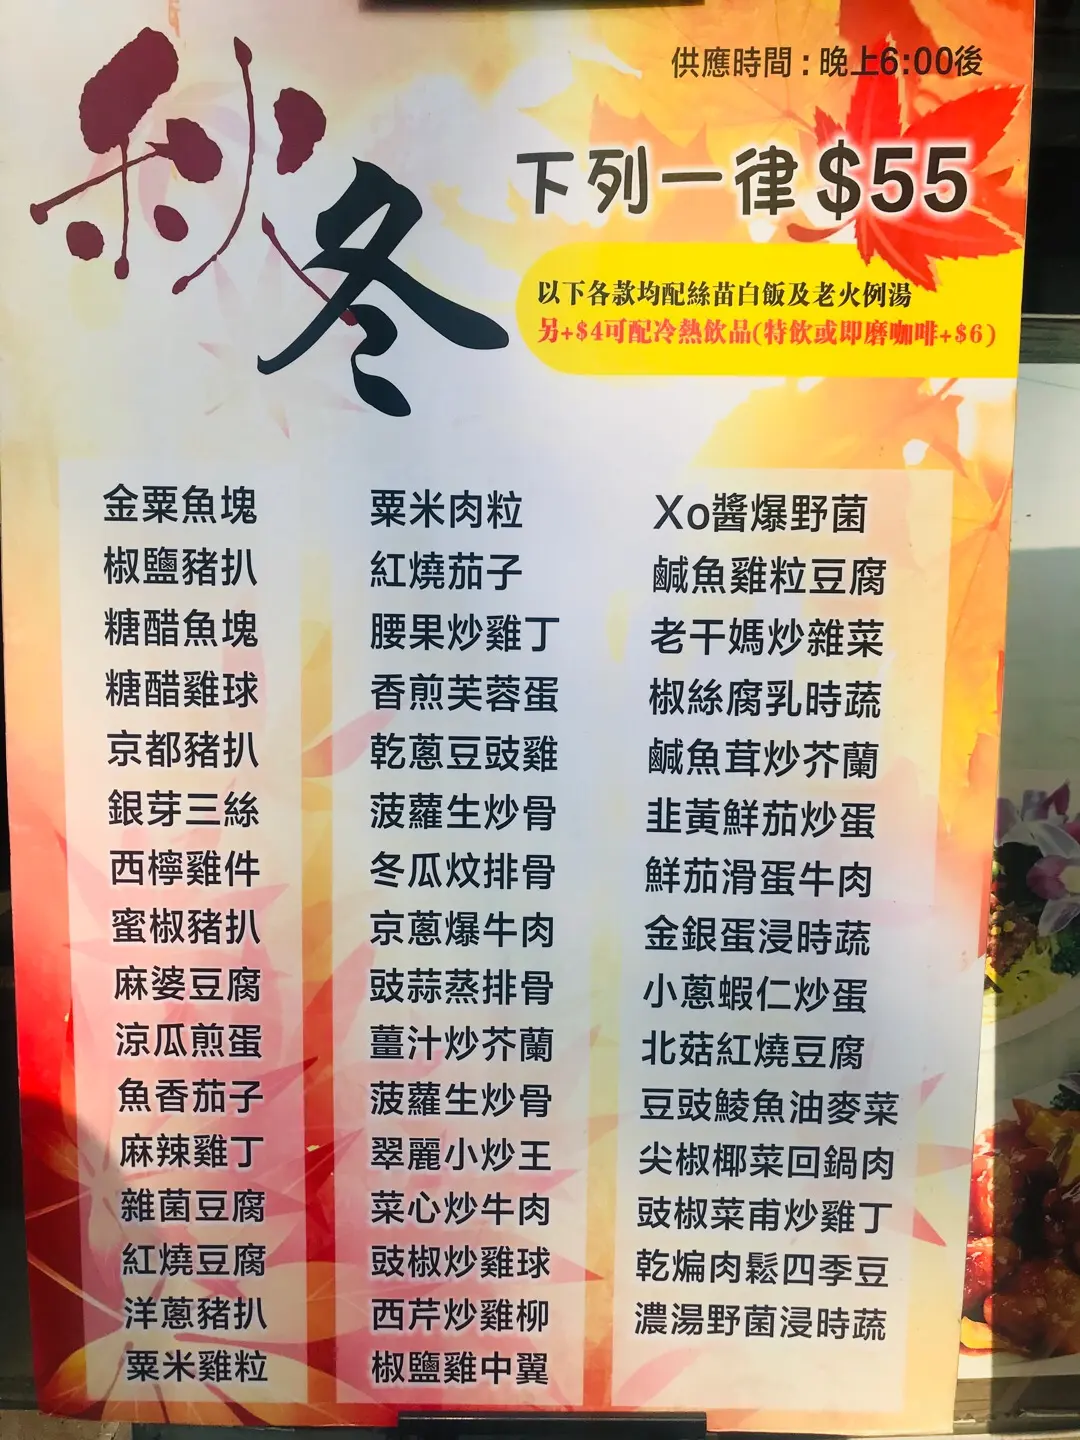 供應時間：晚上6:00後
秋冬
下列一律$55
以下各款均配絲苗白飯及老火例湯
另+$4可配冷熱飲品(特飲或即磨咖啡+$6)
金粟魚塊
椒鹽豬扒
糖醋魚塊
糖醋雞球
京都豬扒
銀芽三絲
西檸雞件
蜜椒豬扒
麻婆豆腐
涼瓜煎蛋
魚香茄子
麻辣雞丁
雜菌豆腐
紅燒豆腐
洋蔥豬扒
粟米雞粒
粟米肉粒
紅燒茄子
腰果炒雞丁
香煎芙蓉蛋
乾蔥豆豉雞
菠蘿生炒骨
冬瓜炆排骨
京蔥爆牛肉
豉蒜蒸排骨
薑汁炒芥蘭
菠蘿生炒骨
翠麗小炒王
菜心炒牛肉
豉椒炒雞球
西芹炒雞柳
椒鹽雞中翼
Xo醬爆野菌
鹹魚雞粒豆腐
老干媽炒雜菜
椒絲腐乳時蔬
鹹魚茸炒芥蘭
韭黃鮮茄炒蛋
鮮茄滑蛋牛肉
金銀蛋浸時蔬
小蔥蝦仁炒蛋
北菇紅燒豆腐
豆豉鯪魚油麥菜
尖椒椰菜回鍋肉
豉椒菜甫炒雞丁
乾煸肉鬆四季豆
濃湯野菌浸時蔬